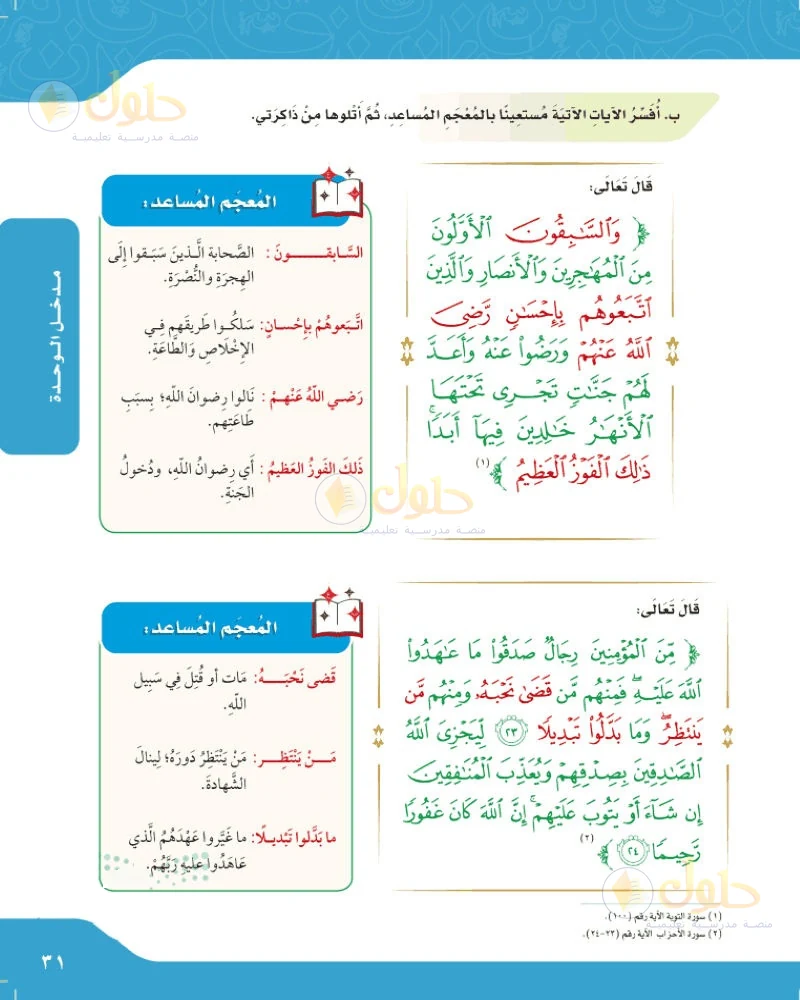 حلول
منصة مدرسية تعليمية
ب. أُفَسِّرُ الآياتِ الآتيَةَ مُستعِينًا بالمُعْجَمِ المُساعِدِ، ثُمَّ أَتْلوها مِنْ ذَاكِرَتي.
قَالَ تَعَالَى:
﴿ وَالسَّابِقُونَ الْأَوَّلُونَ
مِنَ الْمُهَاجِرِينَ وَالْأَنصَارِ وَالَّذِينَ
اتَّبَعُوهُم بِإِحْسَانٍ رَّضِيَ
اللَّهُ عَنْهُمْ وَرَضُوا عَنْهُ وَأَعَدَّ
لَهُمْ جَنَّاتٍ تَجْرِي تَحْتَهَا
الْأَنْهَارُ خَالِدِينَ فِيهَا أَبَدًا ۚ
ذَٰلِكَ الْفَوْزُ الْعَظِيمُ ﴾ (١)
المُعجَم المُساعد:
السَّابقـــونَ : الصَّحابة الَّـذينَ سَبَـقوا إلَى
الهِجرَةِ والنُّصْرَةِ.
اتَّبَعوهُمْ بإحْسانٍ: سَلكُـوا طَريقَهم فِـي
الإخْلَاصِ وَالطَّاعَةِ.
رَضـي اللّهُ عَنْهـمْ : نَالوا رِضوانَ اللّهِ؛ بِسَببِ
طَاعَتِهم.
ذَلكَ الفَوزُ العَظيمُ : أَي رِضوانُ اللّهِ، ودُخولُ
الجَنةِ.
حلول
منصة مدرسية تعليمية
مدخل الوحدة
قَالَ تَعَالَى:
﴿ مِّنَ الْمُؤْمِنِينَ رِجَالٌ صَدَقُوا مَا عَاهَدُوا
اللَّهَ عَلَيْهِ ۖ فَمِنْهُم مَّن قَضَىٰ نَحْبَهُ وَمِنْهُم مَّن
يَنتَظِرُ ۖ وَمَا بَدَّلُوا تَبْدِيلًا ٢٣ لِّيَجْزِيَ اللَّهُ
الصَّادِقِينَ بِصِدْقِهِمْ وَيُعَذِّبَ الْمُنَافِقِينَ
إِن شَاءَ أَوْ يَتُوبَ عَلَيْهِمْ ۚ إِنَّ اللَّهَ كَانَ غَفُورًا
رَّحِيمًا ٢٤ ﴾ (٢)
المُعجَم المُساعد:
قَضى نَحْبَـــهُ: مَات أو قُتِلَ فِي سَبِيل
اللّهِ.
مَـــنْ يَنْتَظِـــر: مَنْ يَنْتَظِرُ دَورَهُ؛ لِينالَ
الشَّهادةَ.
ما بَدَّلوا تَبْديـلًا: ما غَيَّروا عَهْدَهُمُ الَّذي
عَاهَدُوا عليهِ رَبَّهُمْ.
حلول
منصة مدرسية تعليمية
(١) سورة التوبة الآية رقم (١٠٠).
(٢) سورة الأحزاب الآية رقم (٢٣-٢٤).
٣١